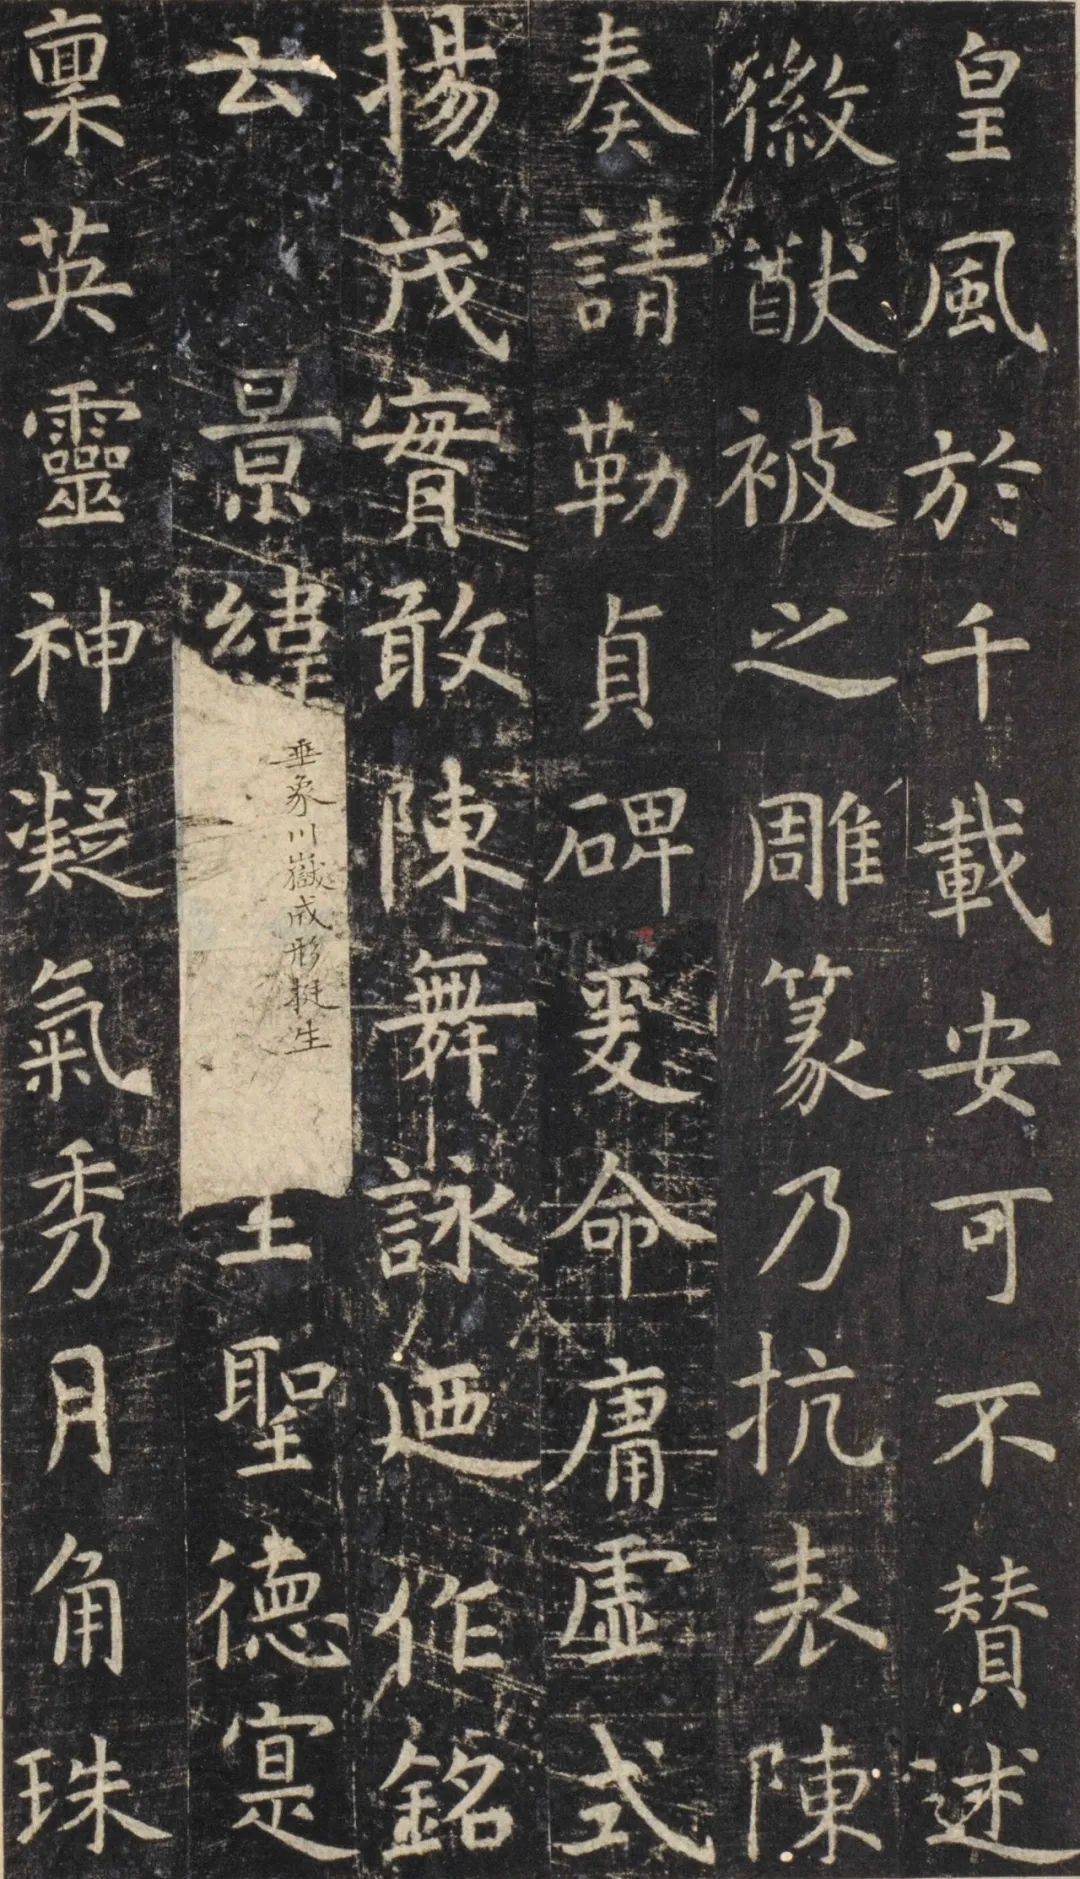 皇風於千載安可不賛述
徽猷被之雕篆乃抗表陳
奏請勒貞碑爰命庸虛式
揚茂實敢陳舞詠迺作銘
云景緯垂象川嶽成形挺生聖德寔
稟英靈神凝氣秀月角珠